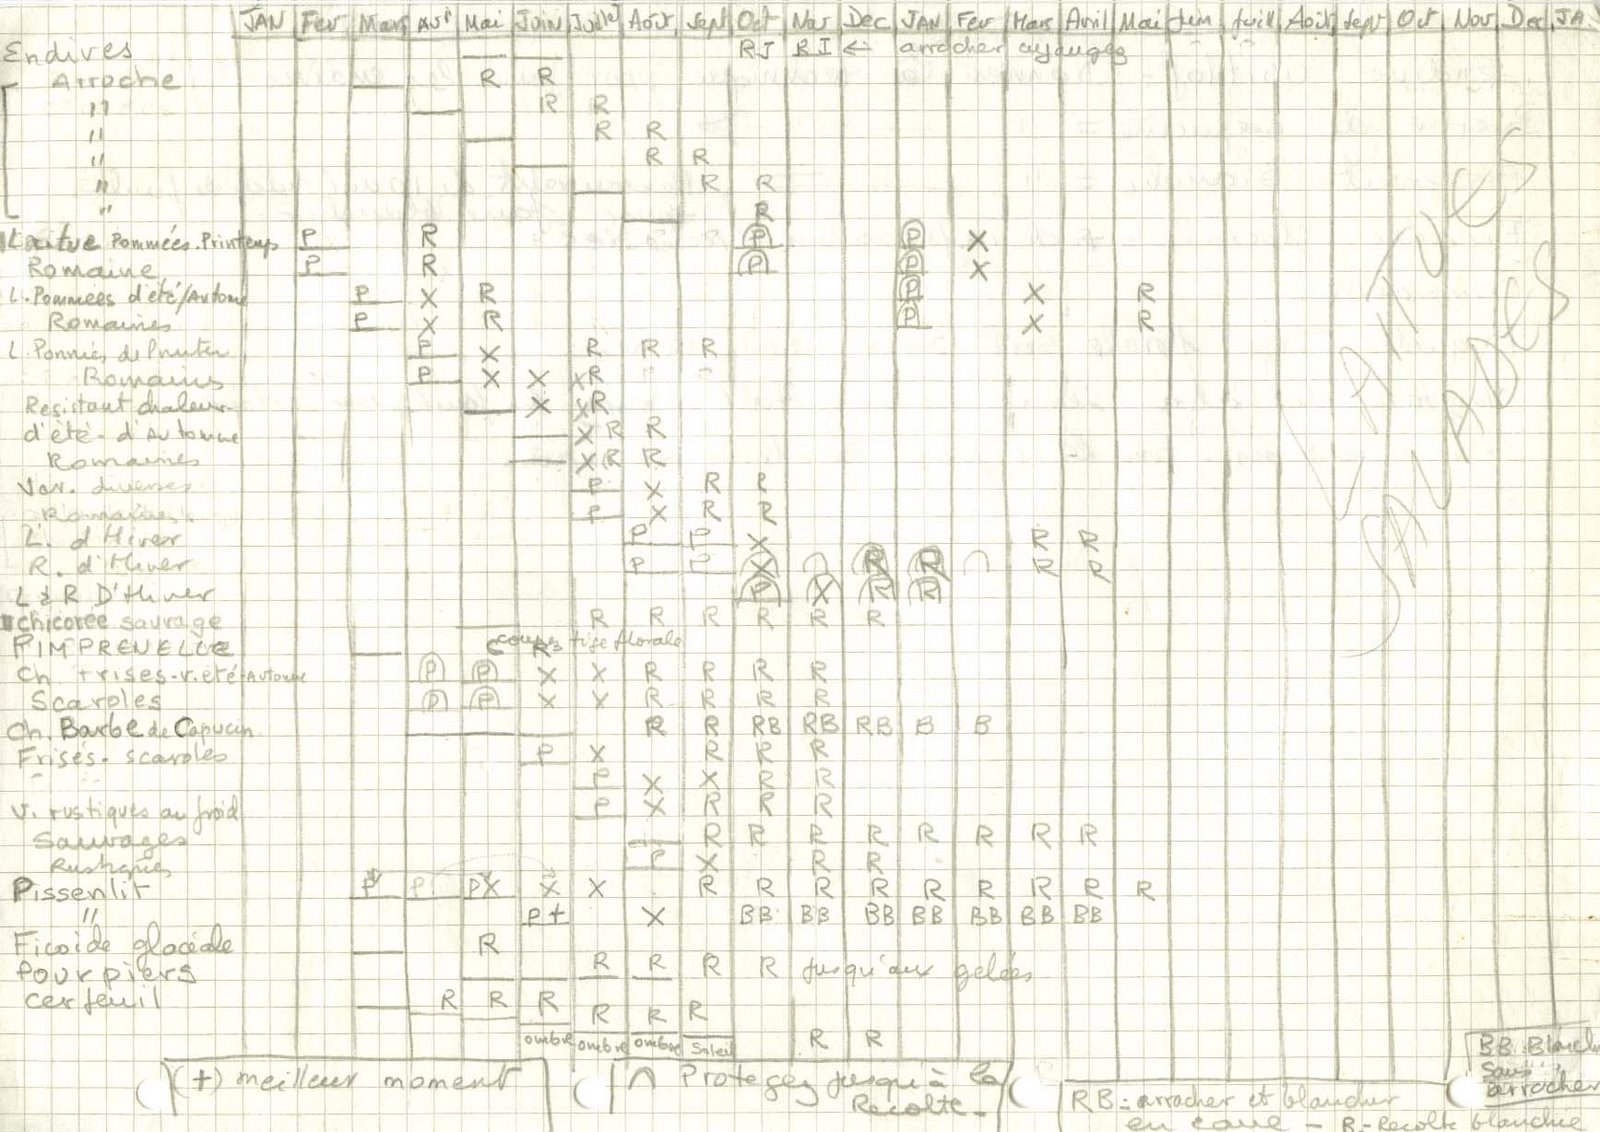 JAN Fev Mars Avr Mai Juin Juillet Août Sept Oct Nov Dec JAN Fev Mars Avril Mai Juin Juill Août Sept Oct Nov Dec JA
Endives RJ BI ← arracher
Arroche R R
" R R
" R R
" R R
" R R
" R
Laitue Pommées. Printemps P R P P X
Romaine P R P P X
L. Pommées d'été/Automne P X R P X R
Romaines P X R P X R
P X R R R
Romaines P X X X R
Resistant chaleur X X R
d'été - d'Automne X R R
Romaines X R R
Var. diverses P X R R
Romaines P X R R
L. d'Hiver P P X R R
R. d'Hiver P P X R R R R
L & R D'Hiver P X R R
chicorée sauvage R R R R R R
PIMPRENELLE coupe tige florale
Ch. frises-v.été-Automne P P X X R R R R
Scaroles P P X X R R R R
Ch. Barbe de Capucin R R RB RB RB B B
Frisés. scaroles P X R R R
P X X R R
V. rustiques au froid P X R R R
Sauvages R R R R R R R R
Rustiques P X R R
Pissenlit P P PX X X R R R R R R R R R
" P+ X BB BB BB BB BB BB BB
Ficoïde glaciale R
Pourpiers R R R R jusqu'aux gelées
Cerfeuil R R R R R R
ombre ombre ombre Soleil R R
(+) meilleur moment
∩ Protegez jusqu'à la
Récolte -
RB = arracher et blanchir
en cave - R - Recolte blanchie
BB Blanch
Sans
arracher
LAITUES
SALADES